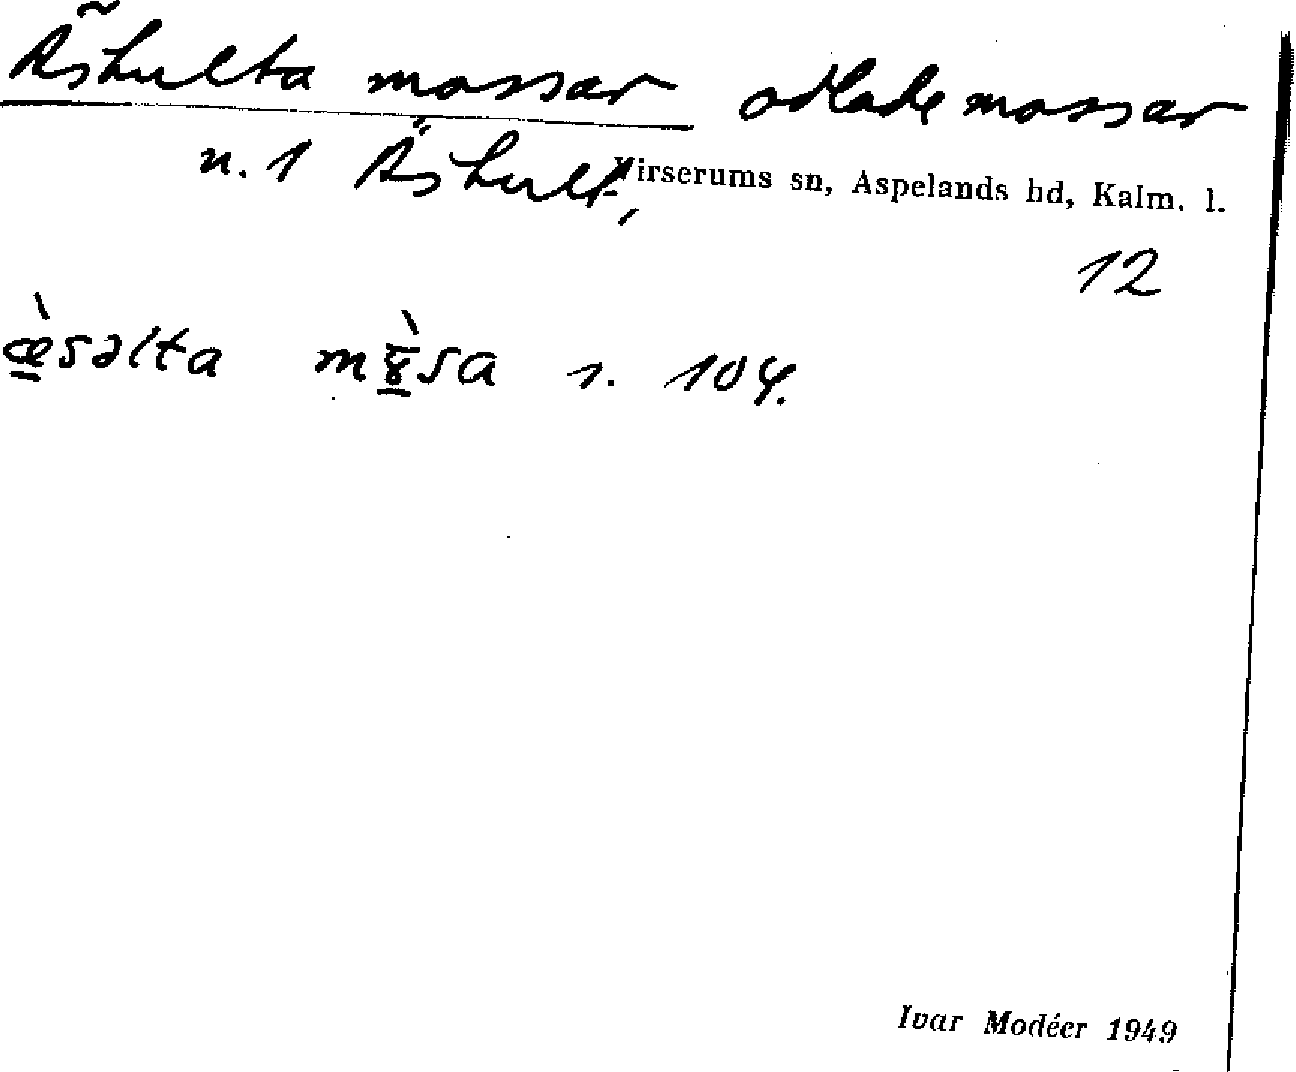 Äshulta mossar odlade mossar
n. 1 Äshult, Virserums sn, Aspelands hd, Kalm. l.
12
æ̠̀səlta m̀ɤ̠sa s. 104.
Ivar Modéer 1949